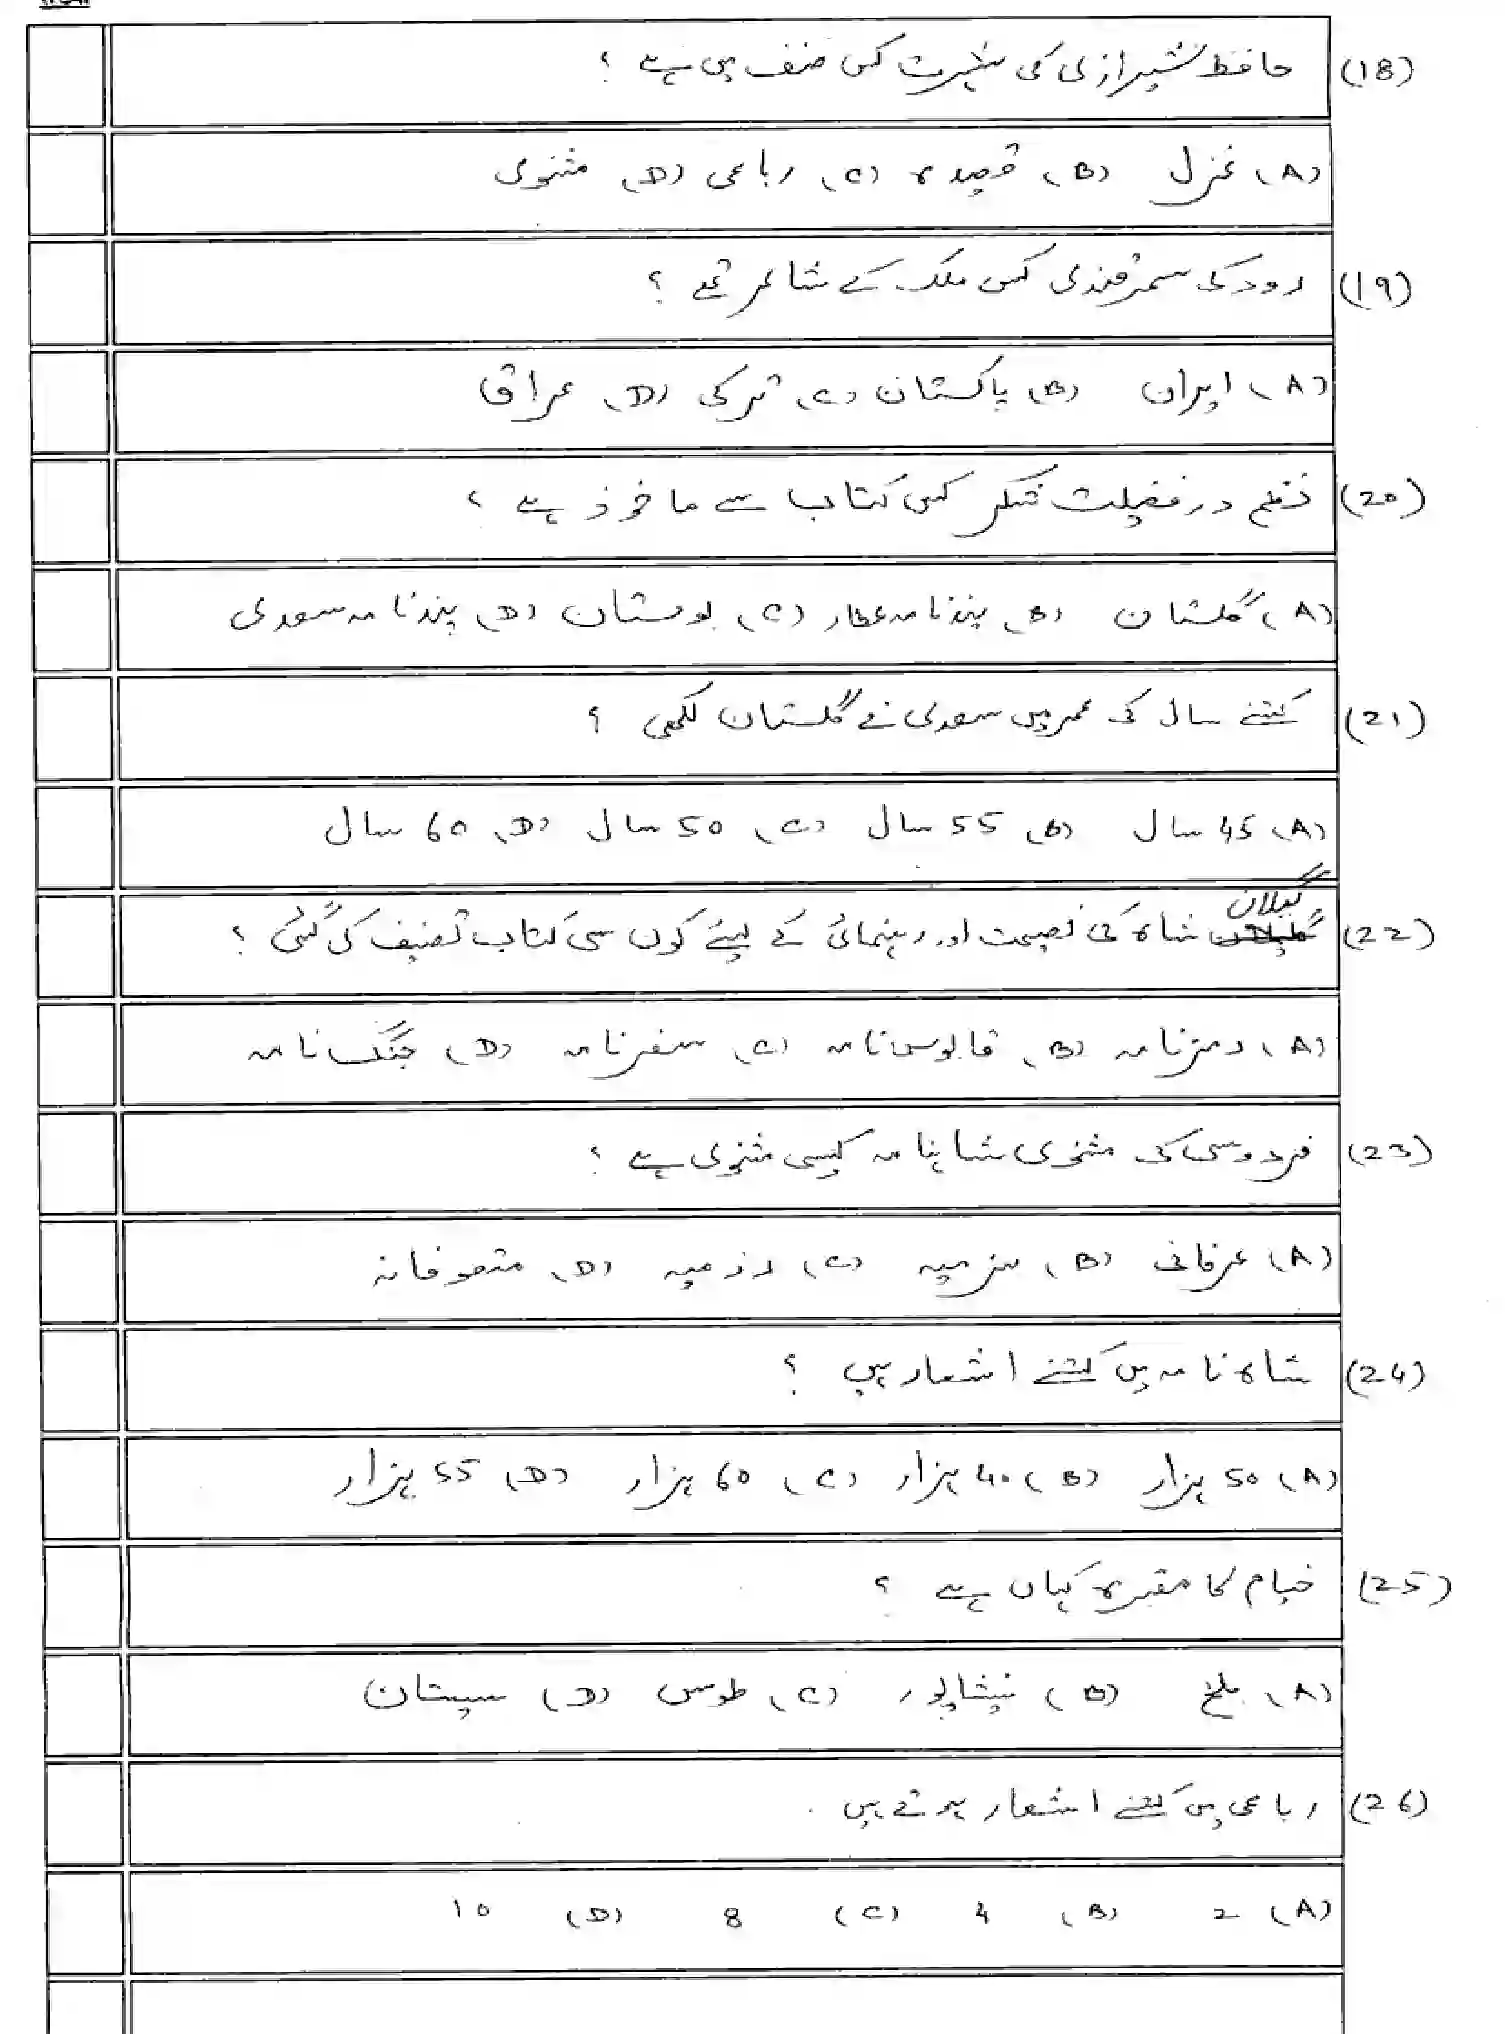 (18) حافظ شیرازی کی شہرت کس صنف میں ہے ؟
(A) غزل (B) قصیدہ (C) رباعی (D) مثنوی
(19) رودکی سمرقندی کس ملک کے شاعر تھے ؟
(A) ایران (B) پاکستان (C) ترکی (D) عراق
(20) نظم در فضیلت شکر کس کتاب سے ماخوذ ہے ؟
(A) گلستان (B) پندنامہ عطار (C) بوستان (D) پندنامہ سعدی
(21) کتنے سال کی عمر میں سعدی نے گلستان لکھی ؟
(A) 45 سال (B) 55 سال (C) 50 سال (D) 60 سال
(22) گیلان شاہ کی نصیحت اور رہنمائی کے لیئے کون سی کتاب تصنیف کی گئی ؟
(A) رمزنامہ (B) قابوس نامہ (C) سفرنامہ (D) جنگ نامہ
(23) فردوسی کی مثنوی شاہنامہ کیسی مثنوی ہے ؟
(A) عرفانی (B) بزمیہ (C) رزمیہ (D) متصوفانہ
(24) شاہ نامہ میں کتنے اشعار ہیں ؟
(A) 50 ہزار (B) 40 ہزار (C) 60 ہزار (D) 55 ہزار
(25) خیام کا مقبرہ کہاں ہے ؟
(A) بلخ (B) نیشاپور (C) طوس (D) سیستان
(26) رباعی میں کتنے اشعار ہوتے ہیں .
(A) 2 (B) 4 (C) 8 (D) 10